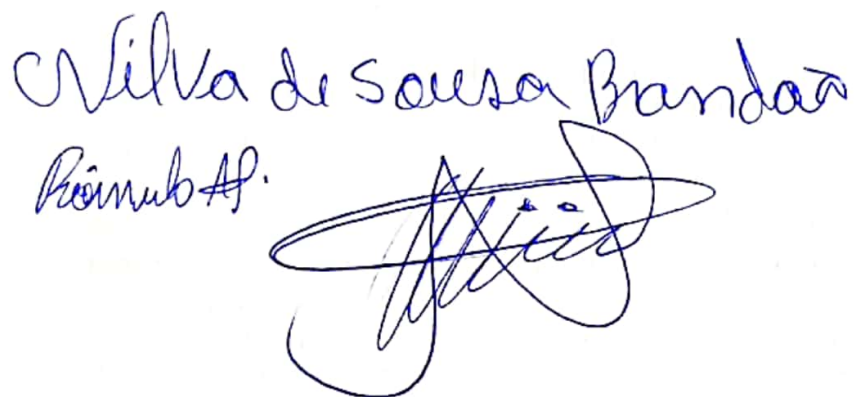 Nilva de Sousa Brandão
Rômulo AP.